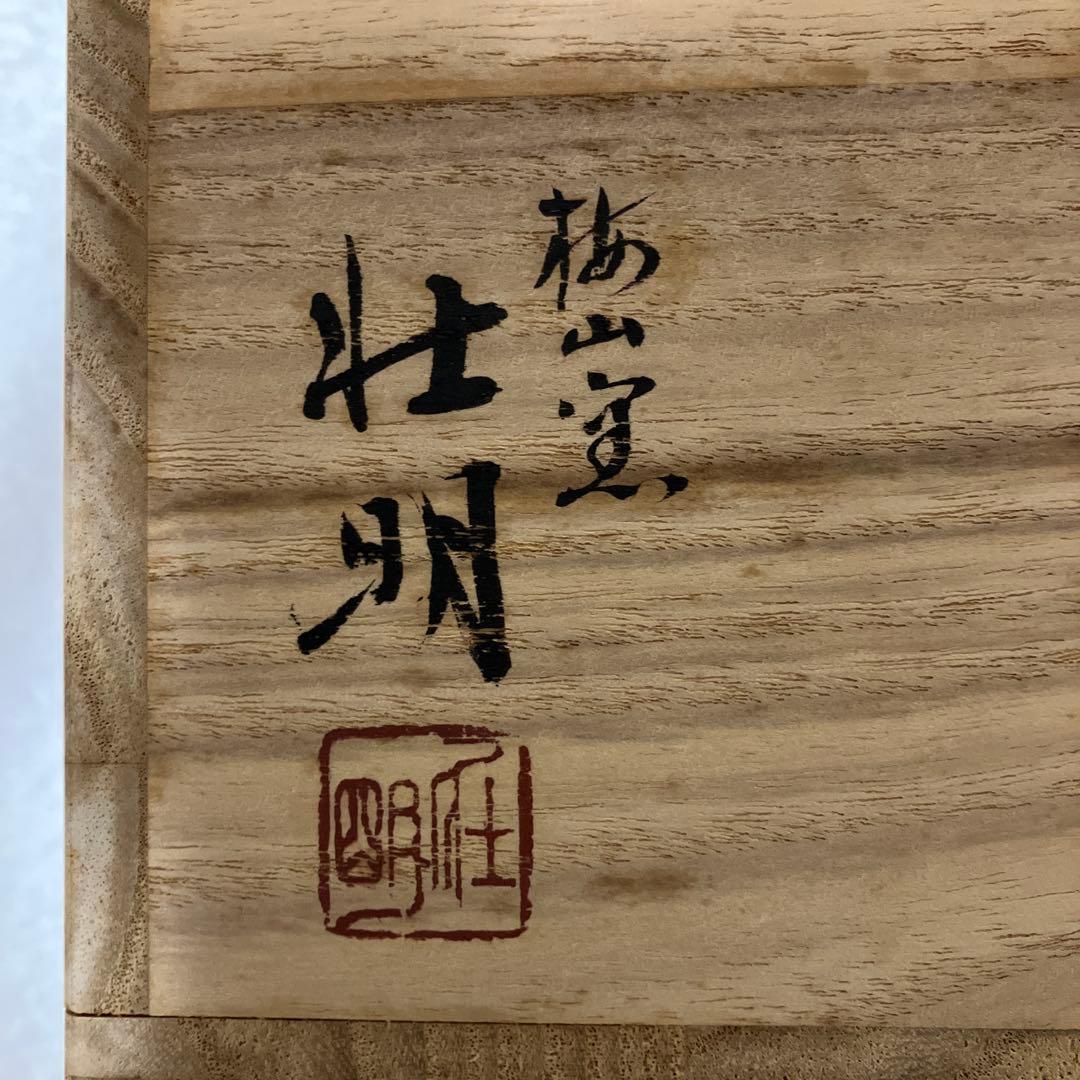 梅山窯
壮明
壮明